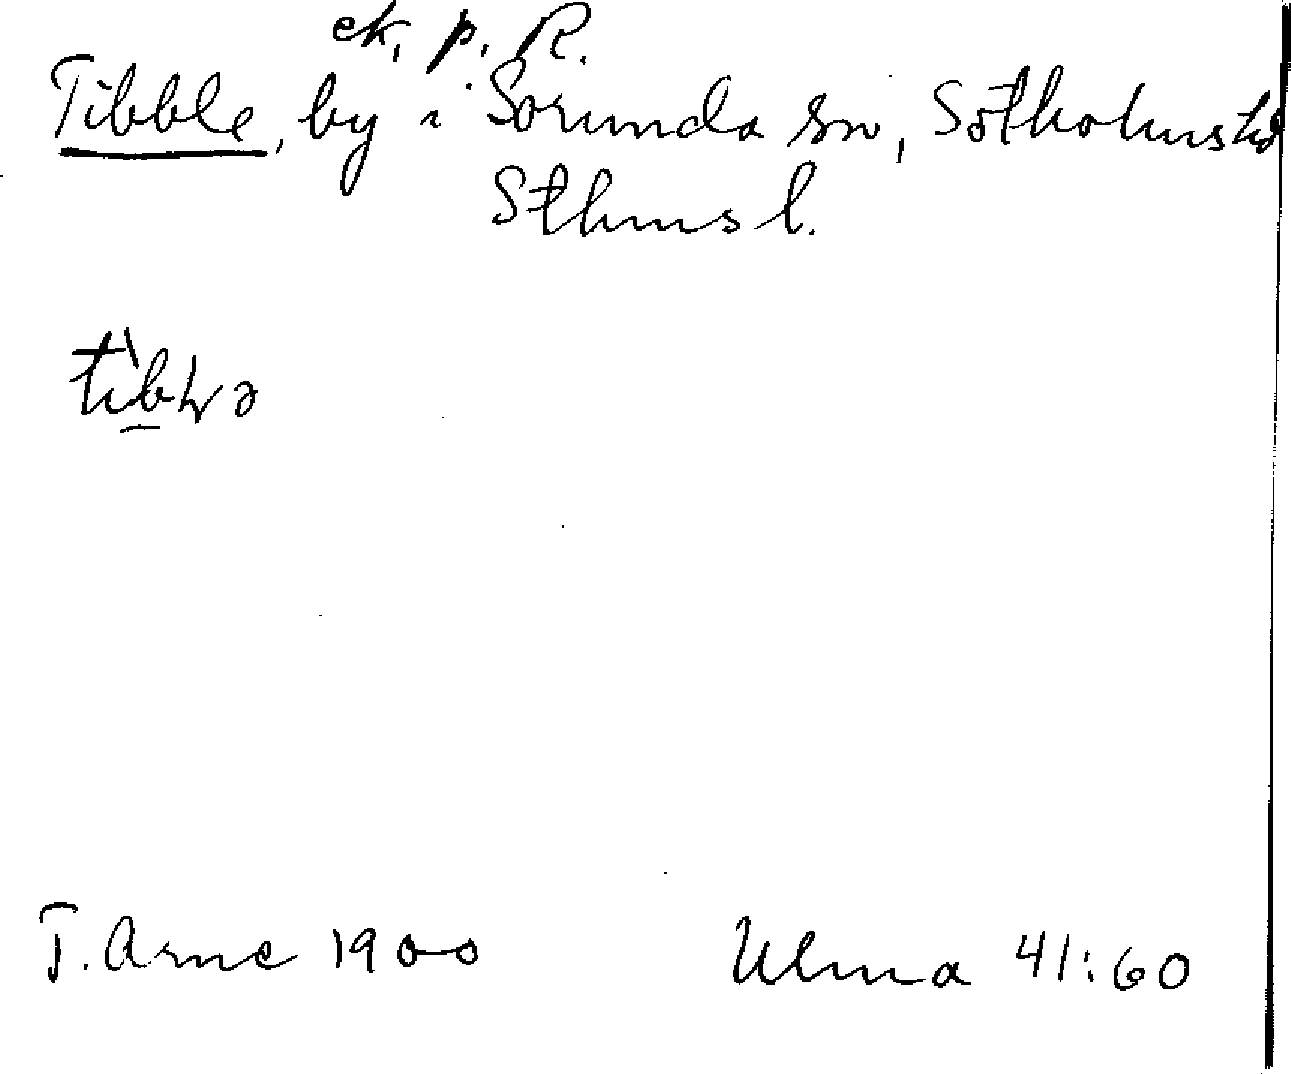 ek. p. R.
Tibble, by i Sorunda sn, Sotholms hd
Sthms l.
T. Arne 1900
Ulma 41:60